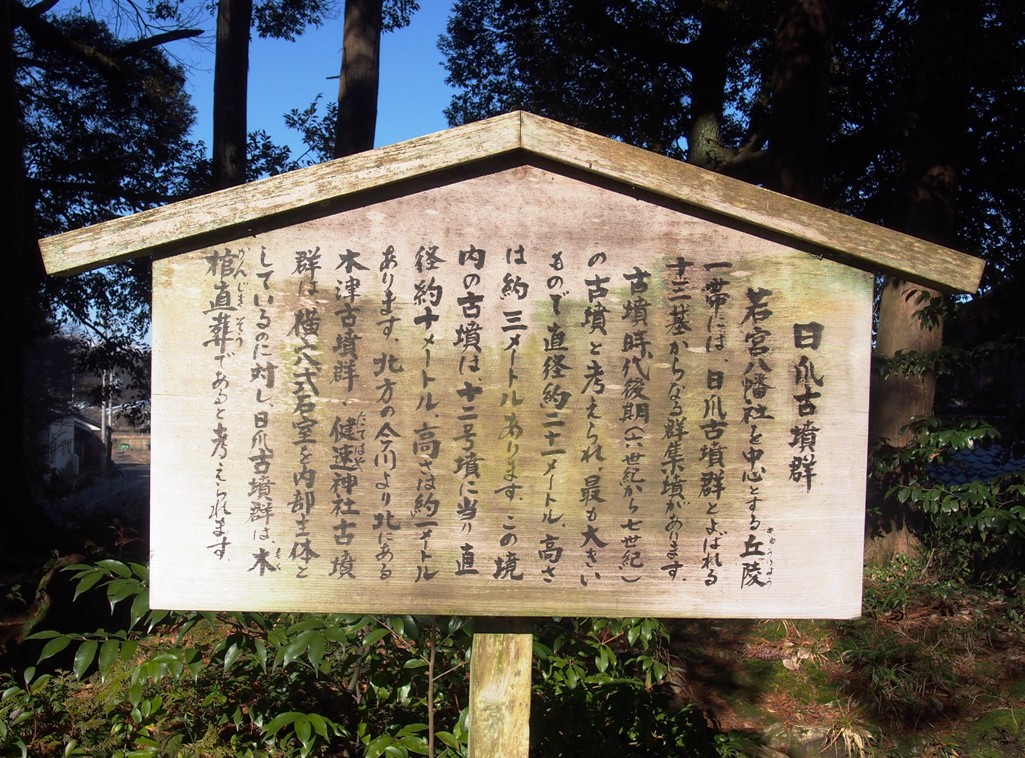 日爪古墳群
若宮八幡社を中心とする丘陵
きゅうりょう
一帯には、日爪古墳群とよばれる
十三基からなる群集墳があります。
古墳時代後期（六世紀から七世紀）
の古墳と考えられ、最も大きい
もので直径約二十一メートル、高さ
は約三メートルあります。この境
内の古墳は、十二号墳に当り直
経約十メートル、高さは約一メートル
あります。北方の今川より北にある
木津古墳群・健速神社古墳
たてはや
群は、横穴式石室を内部主体と
しているのに対し、日爪古墳群は、木
もく
棺直葬であると考えられます。
かんじきそう